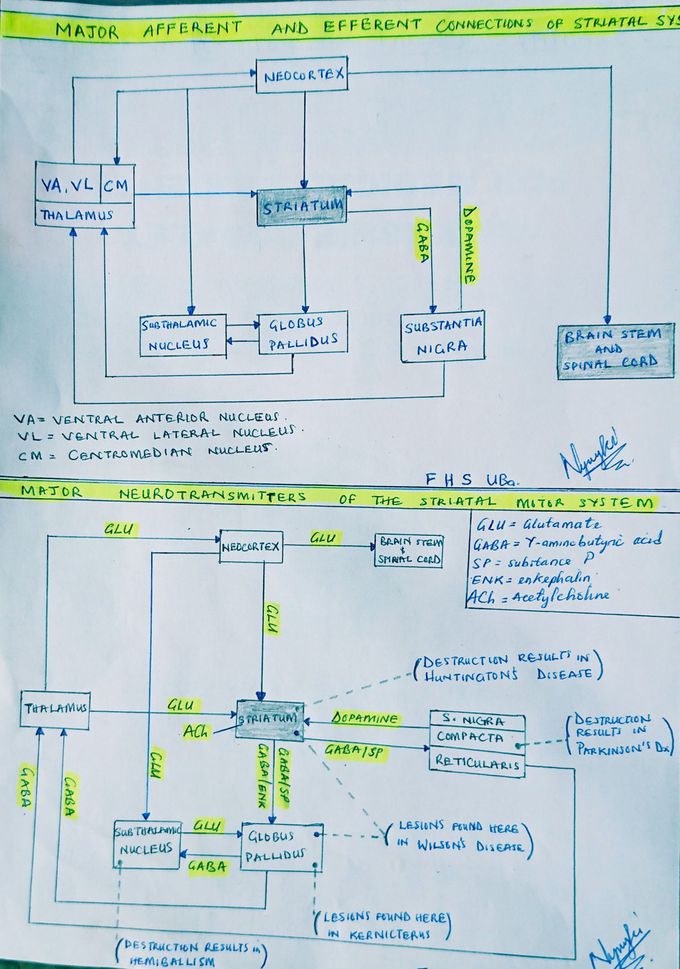 MAJOR AFFERENT AND EFFERENT CONNECTIONS OF STRIATAL SYS
NEOCORTEX
VA, VL
CM
THALAMUS
STRIATUM
GABA
DOPAMINE
SUBTHALAMIC
NUCLEUS
GLOBUS
PALLIDUS
SUBSTANTIA
NIGRA
BRAIN STEM
AND
SPINAL CORD
VA = VENTRAL ANTERIOR NUCLEUS.
VL = VENTRAL LATERAL NUCLEUS.
CM = CENTROMEDIAN NUCLEUS.
FHS UBa.
MAJOR NEUROTRANSMITTERS OF THE STRIATAL MOTOR SYSTEM
GLU = Glutamate
GABA = γ-aminobutyric acid
SP = substance P
ENK = enkephalin
ACh = Acetylcholine
GLU
NEOCORTEX
GLU
BRAIN STEM
&
SPINAL CORD
GLU
(DESTRUCTION RESULTS IN
HUNTINGTON'S DISEASE)
THALAMUS
GLU
STRIATUM
ACh
DOPAMINE
GABA/SP
S. NIGRA
COMPACTA
RETICULARIS
(DESTRUCTION
RESULTS IN
PARKINSON'S Dx)
GABA
GABA
GLU
GABA/ENK
GABA/SP
SUBTHALAMIC
NUCLEUS
GLU
GABA
GLOBUS
PALLIDUS
(LESIONS FOUND HERE
IN WILSON'S DISEASE)
(LESIONS FOUND HERE
IN KERNICTERUS)
(DESTRUCTION RESULTS in
HEMIBALLISM)